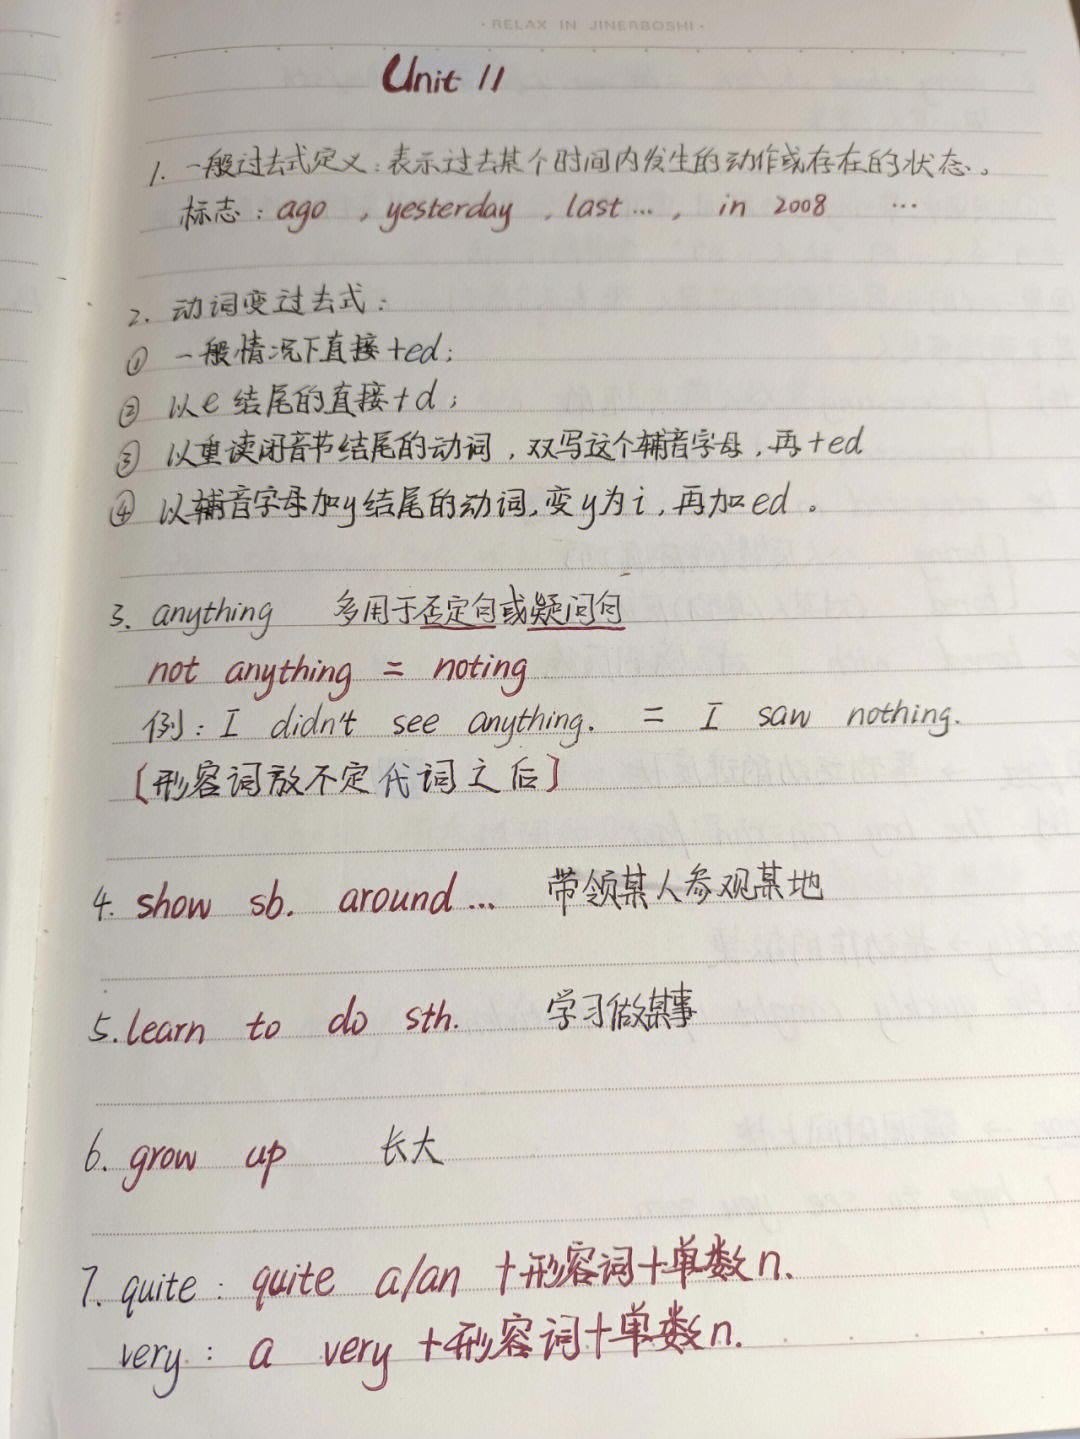 · RELAX IN JINERBOSHI ·
Unit 11
1. 一般过去式定义:表示过去某个时间内发生的动作或存在的状态。
标志: ago , yesterday , last... , in 2008 ...
2. 动词变过去式:
① 一般情况下直接+ed;
② 以e结尾的直接+d;
③ 以重读闭音节结尾的动词,双写这个辅音字母,再+ed
④ 以辅音字母加y结尾的动词,变y为i,再加ed。
3. anything 多用于否定句或疑问句
not anything = noting
例: I didn't see anything. = I saw nothing.
[形容词放不定代词之后]
4. show sb. around... 带领某人参观某地
5. learn to do sth. 学习做某事
6. grow up 长大
7. quite: quite a/an +形容词+单数n.
very: a very +形容词+单数n.